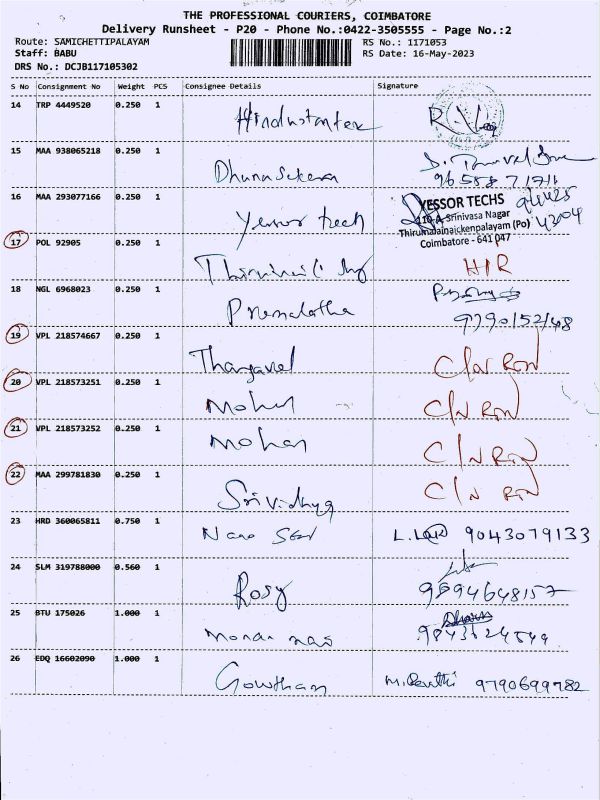 THE PROFESSIONAL COURIERS, COIMBATORE
Delivery Runsheet - P20 - Phone No.:0422-3505555 - Page No.:2
Route: SAMICHETTIPALAYAM RS No.: 1171053
Staff: BABU RS Date: 16-May-2023
DRS No.: DCJB117105302
S No Consignment No Weight PCS Consignee Details Signature
14 TRP 4449520 0.250 1
15 MAA 938065218 0.250 1
Dhanasekaran
16 MAA 293077166 0.250 1 YESSOR TECHS
Yessor tech 410-A-Srinivasa Nagar
Thirumalainaickenpalayam (Po)
Coimbatore - 641 047
17 POL 92905 0.250 1
18 NGL 6968023 0.250 1
Premalatha 9790152148
19 VPL 218574667 0.250 1
Thangavel C/N RTN
20 VPL 218573251 0.250 1
Mohan C/N RTN
21 VPL 218573252 0.250 1
Mohan C/N RTN
22 MAA 299781830 0.250 1 C/N RTN
Srividhya
23 HRD 360065811 0.750 1
9043079133
24 SLM 319788000 0.560 1
Rosy 9594648157
25 BTU 175026 1.000 1
26 EDQ 16602090 1.000 1
Gowtham 9790699782